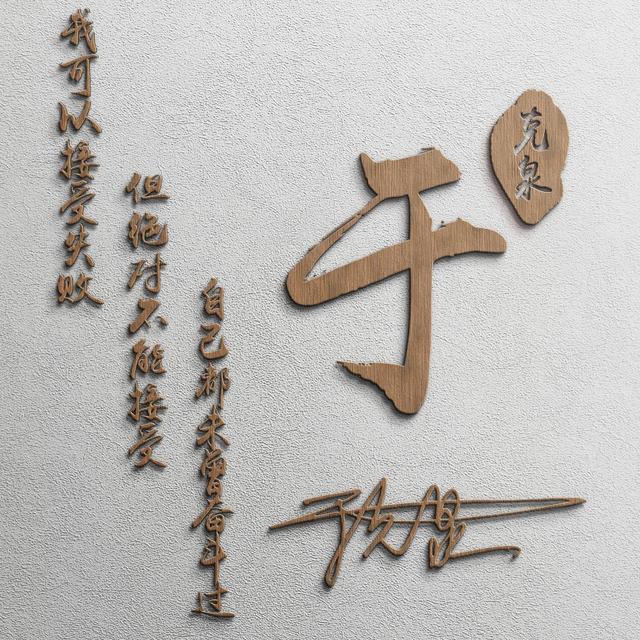 我可以接受失败
但绝对不能接受
自己都未曾奋斗过
于
克泉
于克泉